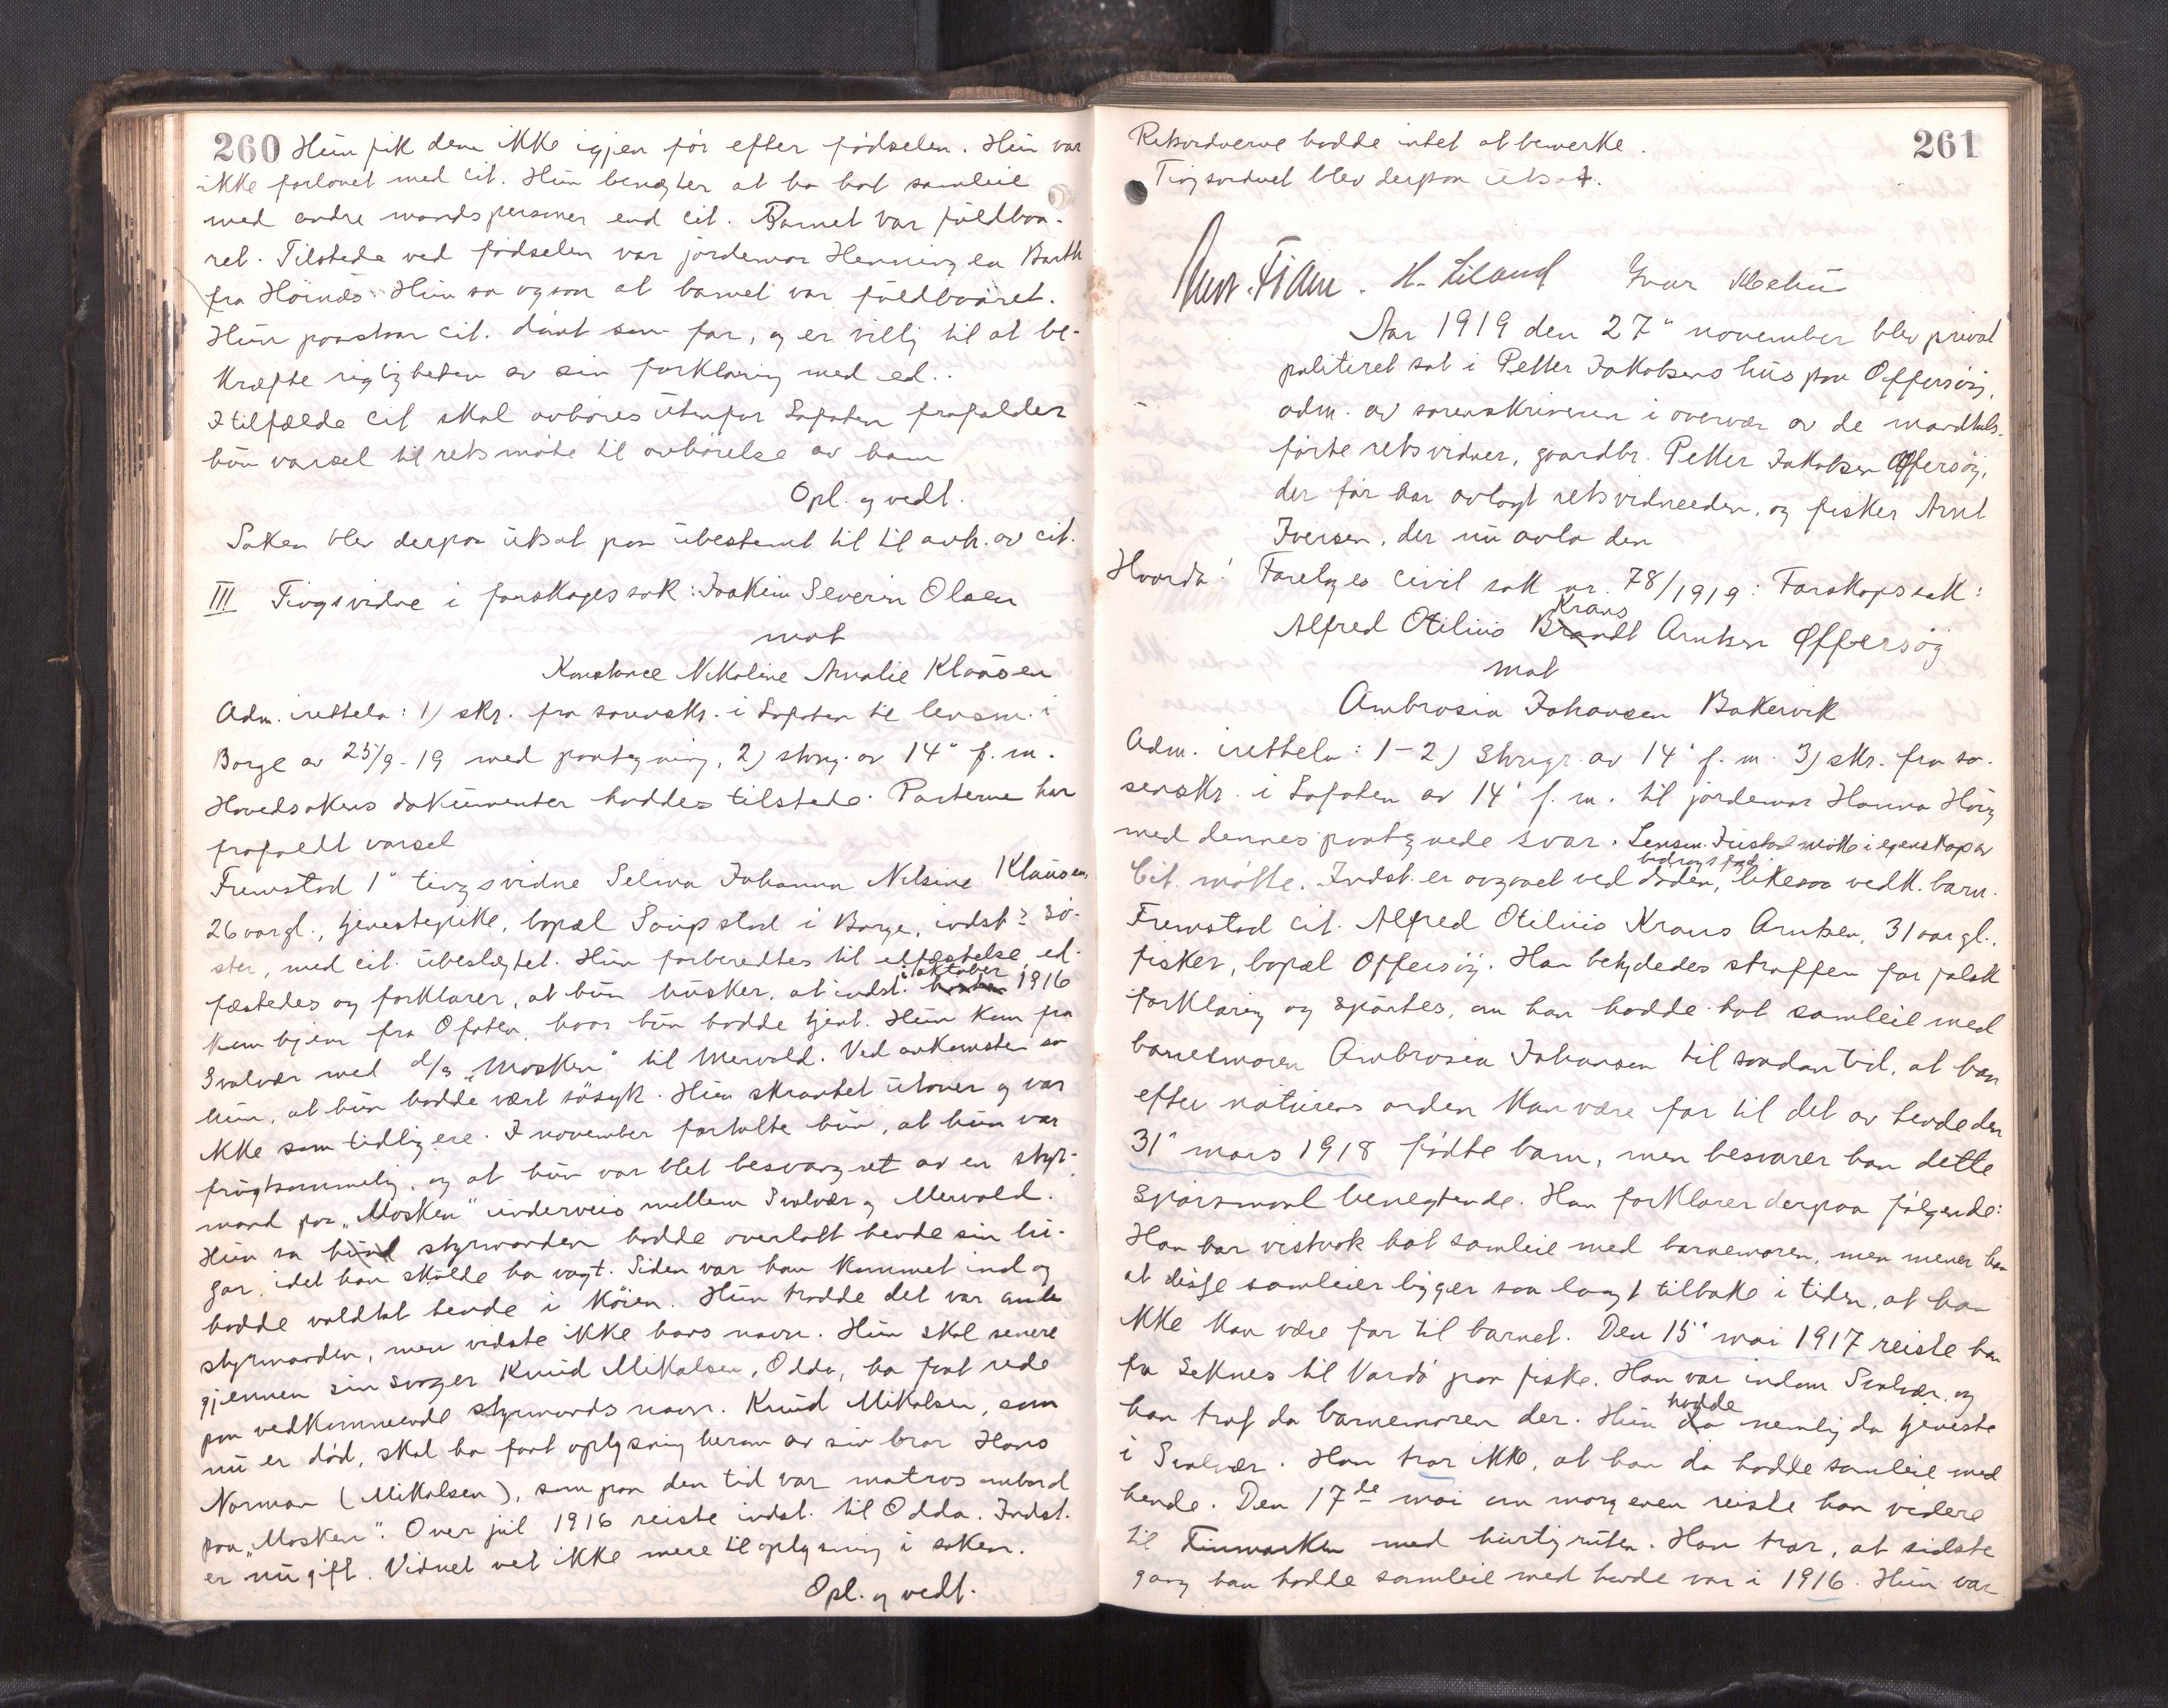 260 Hun fik dem ikke igjen før efter fødselen. Hun var
ikke forlovet med cit. Hun benegter at ha hat samleie
med andre mandspersoner end cit. Barnet var fuldbaa-
ret. Tilstede ved fødselen var jordemor Henningea Barth
fra Höinæs. Hun sa ogsaa at barnet var fuldbaaret.
Hun paastaar cit. dømt som far, og er villig til at be-
kræfte rigtigheten av sin forklaring med ed.
I tilfælde cit skal avhøres utenfor Lofoten frafalder
hun varsel til retsmøte til avhørelse av ham
Opl. og vedt.
Saken blev derpaa utsat paa ubestemt tid til avh. av cit.
III Tingsvidne i farskapssak: Joakim Severin Olsen
mot
Konstance Nikoline Amalie Klausen
Adm. irettela: 1) skr. fra sorenskr. i Lofoten til lensm. i
Borge av 25/9-19 med paategning, 2) stevng. av 14' f. m.
Hovedsakens dokumenter haddes tilstede. Parterne har
frafaldt varsel
Fremstod 1' tingsvidne Selma Johanna Nilsine Klausen,
26 aar gl., tjenestepike, bopæl Saupstad i Borge, indst.s sø-
ster, med cit. ubeslægtet. Hun forberedtes til edfæstelse, ed-
fæstedes og forklarer, at hun husker, at indst. i oktober 1916
kom hjem fra Ofoten, hvor hun hadde tjent. Hun kom fra
Svolvær med d/s "Mosken" til Mervold. Ved ankomsten sa
hun, at hun hadde vært søsyk. Hun skrantet utover og var
ikke som tidligere. I november fortalte hun, at hun var
frugtsommelig, og at hun var blet besvangret av en styr-
mand paa "Mosken" underveis mellem Svolvær og Mervold.
Hun sa styrmanden hadde overlatt hende sin lu-
gar, idet han skulde ha vagt. Siden var han kommet ind og
hadde voldtat hende i køien. Hun trodde det var
styrmanden, men vidste ikke hans navn. Hun skal senere
gjennem sin svoger Knud Mikalsen, Odda, ha faat rede
paa vedkommende styrmands navn. Knud Mikalsen, som
nu er død, skal ha faat oplysning herom av sin bror Hans
Norman (Mikalsen), som paa den tid var matros ombord
paa "Mosken". Over jul 1916 reiste indst. til Odda. Indst.
er nu gift. Vidnet vet ikke mere til oplysning i saken.
Opl. og vedt.
Retsvidnerne hadde intet at bemerke. 261
Tingsvidnet blev derpaa utsat.
H. Liland Ivar
Aar 1919 den 27' november blev privat
politiret sat i Petter Jakobsens hus paa Offersøy,
adm. av sorenskriveren i overvær av de mandtals-
førte retsvidner, gaardbr. Petter Jakobsen Offersøy,
der før har avlagt retsvidneeden, og fisker Arnt
Iversen, der nu avla den
Hvorda: Foretoges civil sak nr. 78/1919: Farskapssak:
Krans
Alfred Otilius Brandt Arntsen Offersøy
mot
Ambrosia Johansen Bakervik
Adm. irettela: 1-2) Stevngr. av 14' f. m. 3) skr. fra so-
renskr. i Lofoten av 14' f. m. til jordemor Hanna Höeg
med dennes paategnede svar. Lensm. Fristad møtte i egenskap av
bidragsfogd.
Cit. møtte. Indst. er avgaaet ved døden, likesaa vedk. barn.
Fremstod cit. Alfred Otilius Krans Arntsen, 31 aar gl.,
fisker, bopæl Offersøy. Han betydedes straffen for falsk
forklaring og spurtes, om han hadde hat samleie med
barnemoren Ambrosia Johansen til saadan tid, at han
efter naturens orden kan være far til det av hende den
31' mars 1918 fødte barn, men besvarer han dette
spørsmaal benegtende. Han forklarer derpaa følgende:
Han har vistnok hat samleie med barnemoren, men mener han
at disse samleier ligger saa langt tilbake i tiden, at han
ikke kan være far til barnet. Den 15' mai 1917 reiste han
fra Leknes til Vardø paa fiske. Han var indom Svolvær, og
hadde
han traf da barnemoren der. Hun da nemlig da tjeneste
i Svolvær. Han tror ikke, at han da hadde samleie med
hende. Den 17de mai om morgenen reiste han videre
til Finmarken med hurtigruten. Han tror, at sidste
gang han hadde samleie med hende var i 1916. Hun var